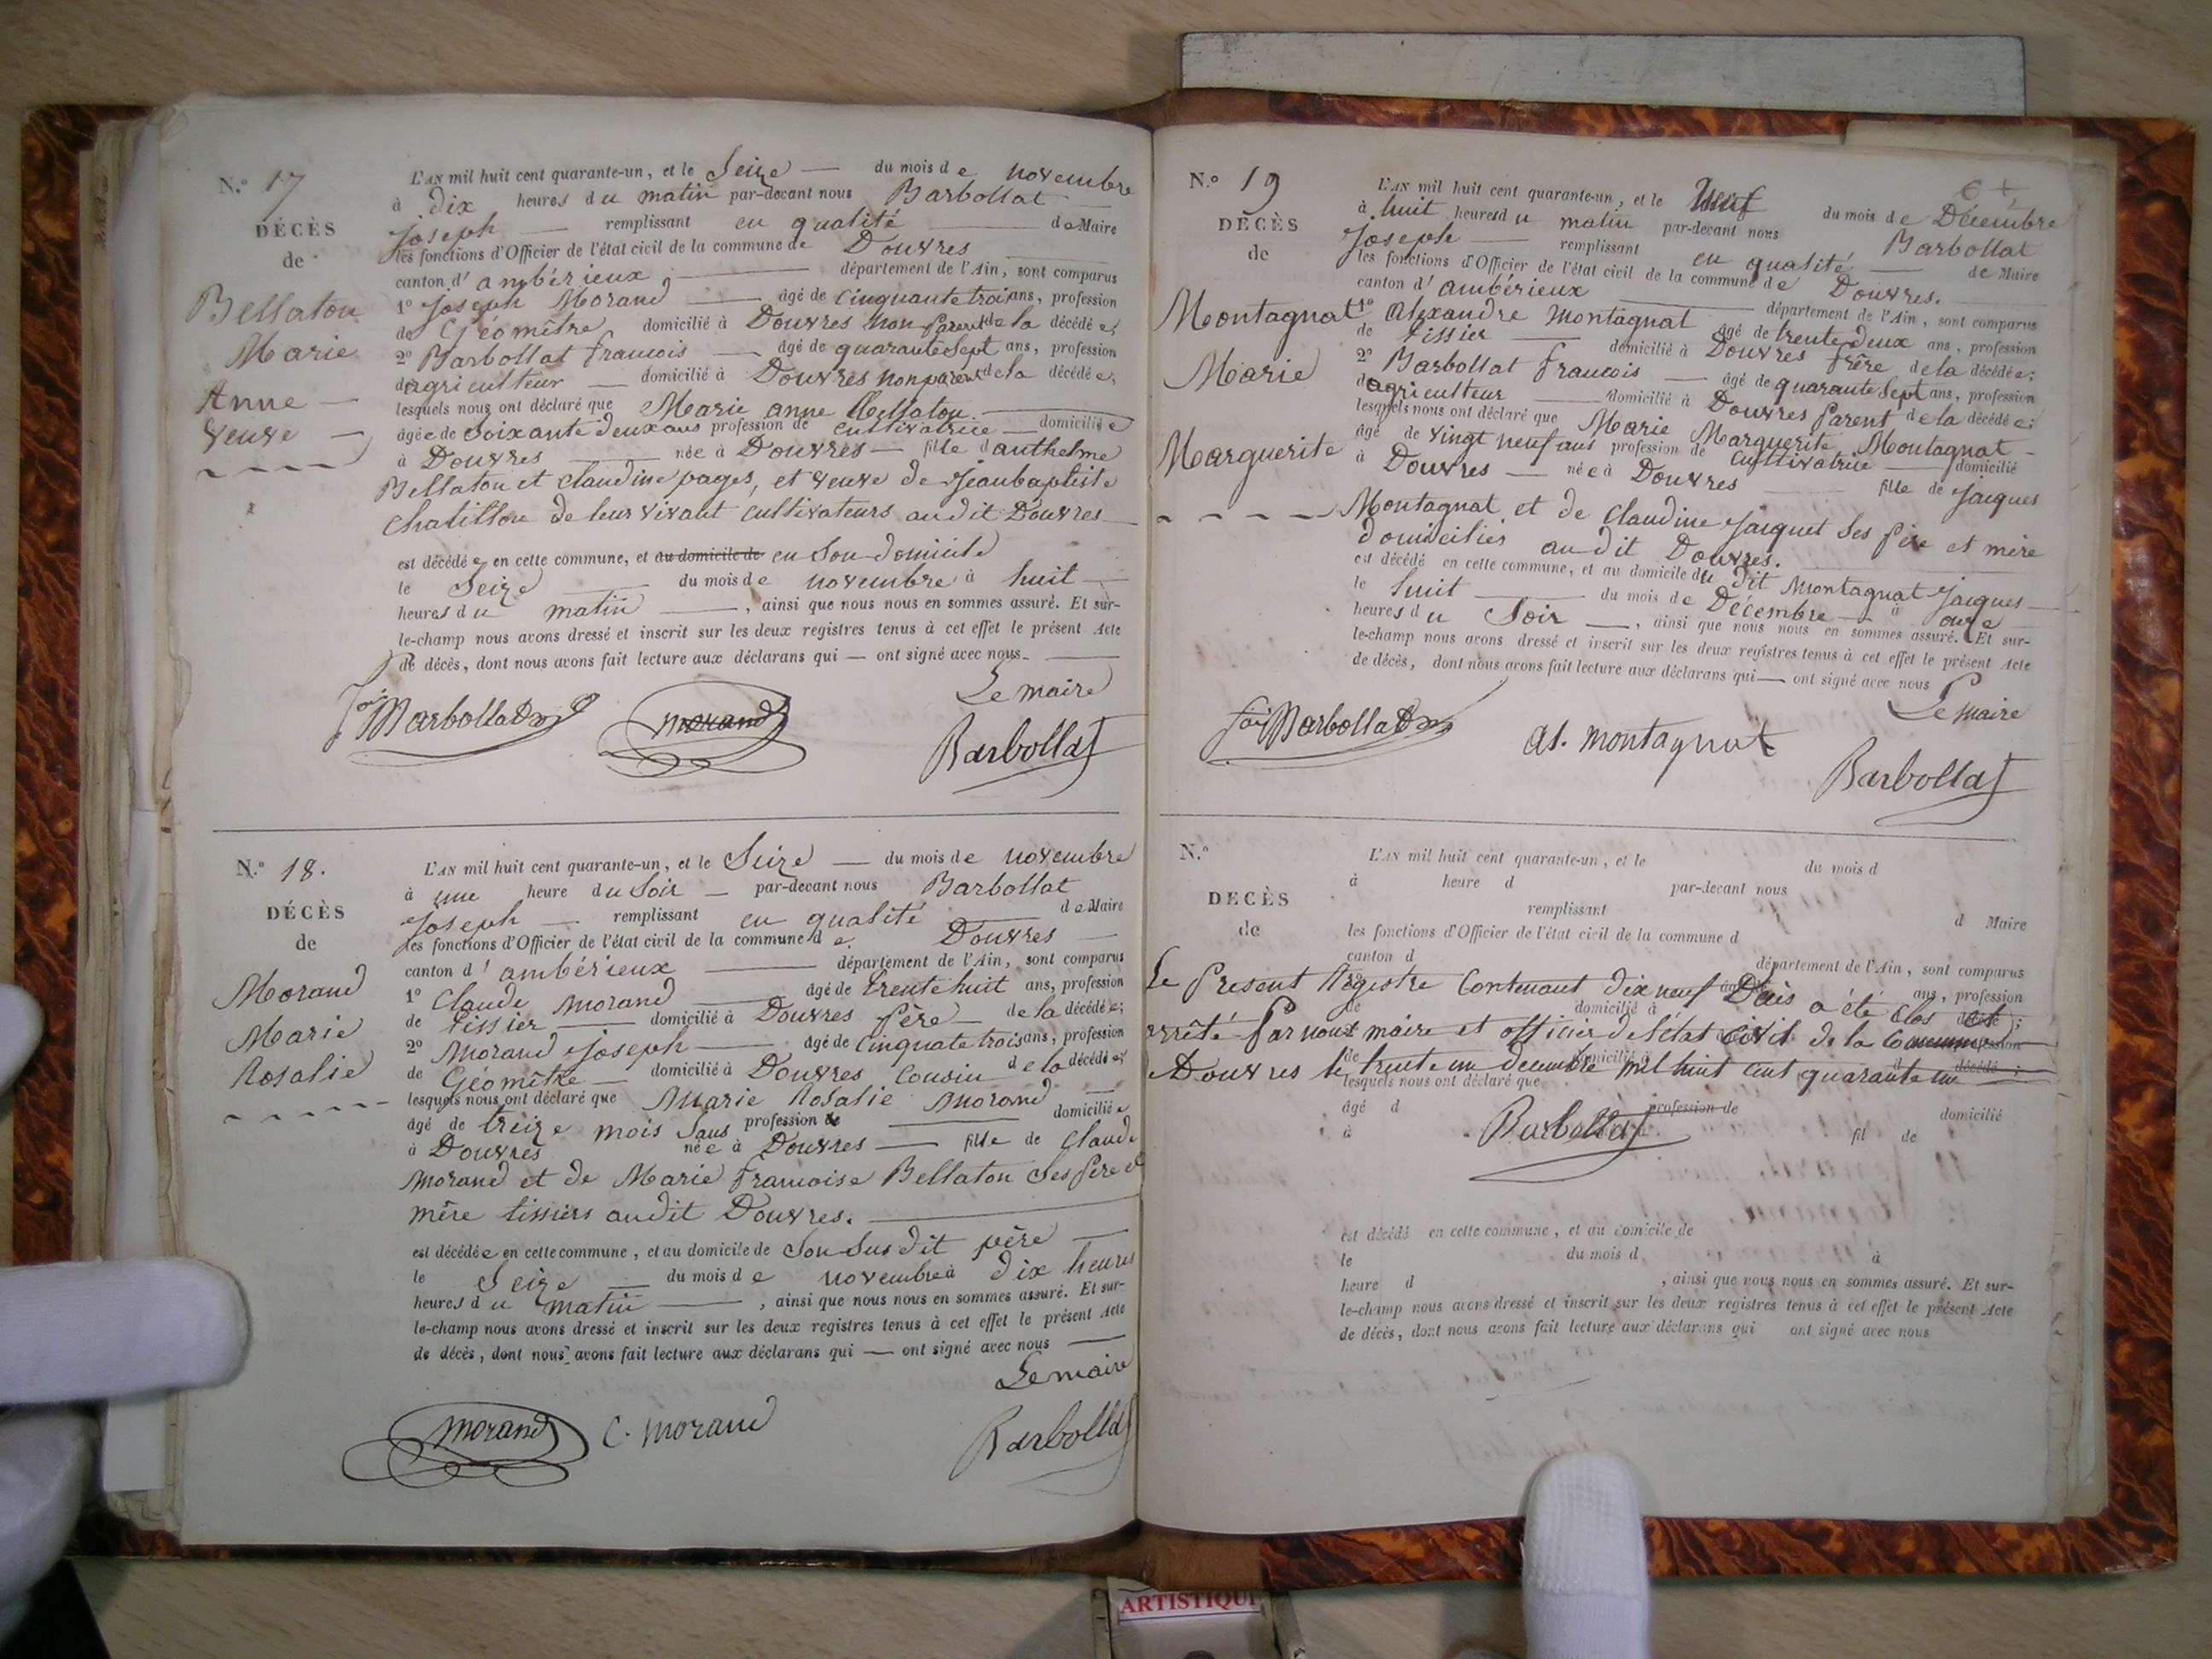 N.° 17
DÉCÈS
de
Bellaton
Marie
Anne —
veuve —
L'AN mil huit cent quarante-un, et le Seize — du mois de novembre
à dix heures du matin par-devant nous Barbollat
Joseph — remplissant en qualité — de Maire
les fonctions d'Officier de l'état civil de la commune de Douvres
canton d'ambérieux — département de l'Ain, sont comparus
1° Joseph Morand — âgé de Cinquante trois ans, profession
de Géomêtre domicilié à Douvres non parent de la décédée;
2° Barbollat francois — âgé de quarante Sept ans, profession
d'agriculteur — domicilié à Douvres non parent de la décédée,
lesquels nous ont déclaré que Marie anne Bellaton —
âgée de Soixante deux ans profession de cultivatrice — domiciliée
à Douvres — née à Douvres — fille d'anthelme
Bellaton et claudine pages, et veuve de Jeanbaptiste
Chatillon de leur vivant cultivateurs audit Douvres —
est décédée en cette commune, et au domicile de en Son domicile
le Seize — du mois de novembre à huit —
heures du matin —, ainsi que nous nous en sommes assuré. Et sur-
le-champ nous avons dressé et inscrit sur les deux registres tenus à cet effet le présent Acte
de décès, dont nous avons fait lecture aux déclarans qui — ont signé avec nous —
Le maire
Barbollat morand
Barbollat
N.° 18.
DÉCÈS
de
Morand
Marie
Rosalie
L'AN mil huit cent quarante-un, et le Seize — du mois de novembre
à une heure du Soir — par-devant nous Barbollat
Joseph — remplissant en qualité — de Maire
les fonctions d'Officier de l'état civil de la commune de Douvres —
canton d'ambérieux — département de l'Ain, sont comparus
1° Claude morand — âgé de trente huit ans, profession
de tissier — domicilié à Douvres père — de la décédée;
2° Morand Joseph — âgé de Cinquate trois ans, profession
de Géomêtre — domicilié à Douvres Cousin de la décédée;
lesquels nous ont déclaré que Marie Rosalie morand —
âgé de treize mois Sans profession de — domiciliée
à Douvres née à Douvres — fille de Claude
morand et de Marie francoise Bellaton Ses père et
mère tissiers audit Douvres. —
est décédée en cette commune, et au domicile de Son Susdit père —
le Seize — du mois de novembre à dix heures
heures du matin —, ainsi que nous nous en sommes assuré. Et sur-
le-champ nous avons dressé et inscrit sur les deux registres tenus à cet effet le présent Acte
de décès, dont nous avons fait lecture aux déclarans qui — ont signé avec nous —
Le maire
morand C. morand
Barbollat
N.° 19
DÉCÈS
de
Montagnat
Marie
Marguerite
L'AN mil huit cent quarante-un, et le neuf du mois de Décembre
à huit heures du matin par-devant nous Barbollat
Joseph — remplissant en qualité — de Maire
les fonctions d'Officier de l'état civil de la commune de Douvres.
canton d'ambérieux — département de l'Ain, sont comparus
1° alexandre montagnat âgé de trente deux ans, profession
de tissier — domicilié à Douvres frère de la décédée;
2° Barbollat francois — âgé de quarante Sept ans, profession
d'agriculteur — domicilié à Douvres Parent de la décédée;
lesquels nous ont déclaré que Marie Marguerite Montagnat —
âgé de vingt neuf ans profession de cultivatrice — domicilié
à Douvres — née à Douvres — fille de Jacques
Montagnat et de claudine Jacquet Ses père et mère
domiciliés audit Douvres.
est décédé en cette commune, et au domicile du dit Montagnat Jacques —
le huit — du mois de Décembre — à onze
heures du Soir —, ainsi que nous nous en sommes assuré. Et sur-
le-champ nous avons dressé et inscrit sur les deux registres tenus à cet effet le présent Acte
de décès, dont nous avons fait lecture aux déclarans qui — ont signé avec nous
Le maire
Barbollat al. montagnat
Barbollat
N.°
DECÈS
de
L'AN mil huit cent quarante-un, et le du mois d
à heure d par-devant nous
remplissant d Maire
les fonctions d'Officier de l'état civil de la commune d
canton d département de l'Ain, sont comparus
Le Present Registre Contenant dix neuf Décès a été clos et
ans, profession
de domicilié à
rrêté Par nous maire et officier de l'état civil de la Commune
Douvres le trente un decembre mil huit cent quarante un
lesquels nous ont déclaré que
âgé d profession de domicilié
à fil de
Barbollat
est décédé en cette commune, et au domicile de
le du mois d à
heure d , ainsi que nous nous en sommes assuré. Et sur-
le-champ nous avons dressé et inscrit sur les deux registres tenus à cet effet le présent Acte
de décès, dont nous avons fait lecture aux déclarans qui ont signé avec nous
ARTISTIQUE